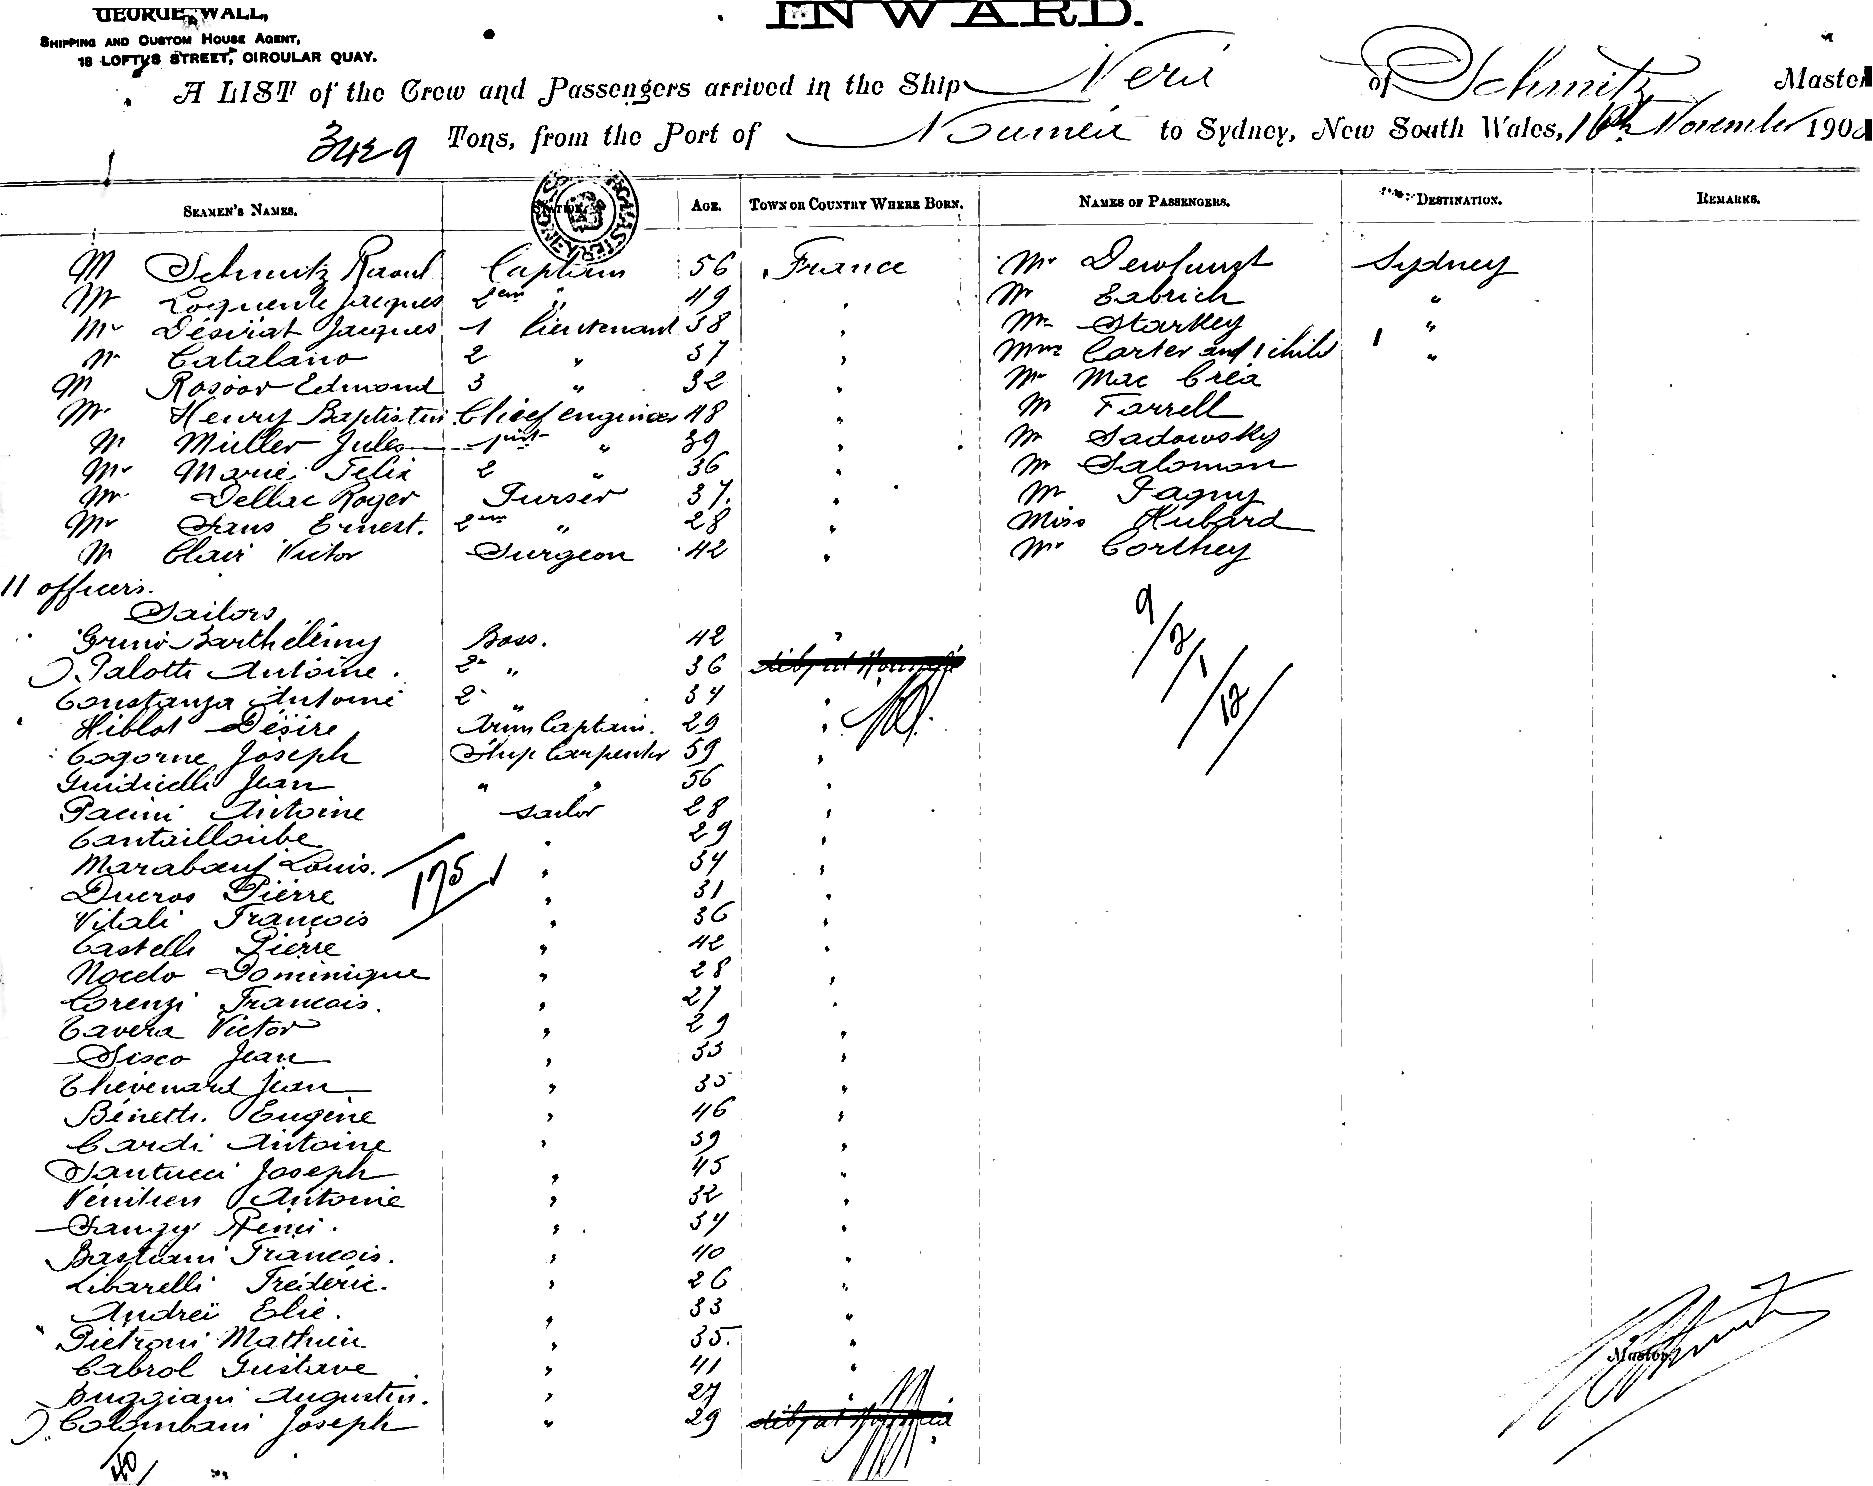 GEORGE WALL,
SHIPPING AND CUSTOM HOUSE AGENT,
18 LOFTUS STREET, CIRCULAR QUAY.
INWARD.
A LIST of the Crew and Passengers arrived in the Ship Néra of Schmitz Master
3429 Tons, from the Port of Nouméa to Sydney, New South Wales, 16th November 190
SEAMEN'S NAMES. STATION. AGE. TOWN OR COUNTRY WHERE BORN. NAMES OF PASSENGERS. DESTINATION. REMARKS.
M Schmitz Raoul Captain 56 France Mr Dewhurst Sydney
Mr Loquente Jacques 2em " 49 " Mr Eabrich "
Mr Désirat Jacques 1 lieutenant 38 " Mr Starkey "
Mr Catalano 2 " 37 " Mme Carter and 1 child 1 "
M Rosoor Edmond 3 " 32 " Mr Mac Créa
Mr Henry Baptistin Chief engineer 48 " M Farrell
Mr Muller Jules first " 39 " Mr Sadowsky
Mr Marie Felix 2 " 36 " Mr Salomon
Mr Dellac Roger Purser 37. " Mr Pagny
Mr Sans Ernest. 2em " 28 " Miss Hubard
Mr Clair Victor Surgeon 42 " Mr Corthey
11 officers.
Sailors
Grino Barthélémy Boss. 42 " 9/2/1/12
Palotti Antoine. 2 " 36
Constanza Antoine 2 " 34 "
Hiblot Désiré Arm Captain. 29 "
Cogorne Joseph Ship Carpenter 59 "
Guidicelli Jean " " 56 "
Pacini Antoine sailor 28 "
Cantailloube " 29 "
Marabœuf Louis. " 34 "
175
Ducros Pierre " 31 "
Vitali François " 36 "
Castelli Pierre " 42 "
Nocelo Dominique " 28 "
Lorenzi Francois. " 27 "
Tavera Victor " 29 "
Sisco Jean " 33 "
Thévenard Jean " 35 "
Bénetti. Eugène " 46 "
Cardi Antoine " 39 "
Santucci Joseph " 45 "
Vénitien Antoine " 32 "
Sanzy Rémi. " 34 "
Bastiani Francois. " 40 "
Libarelli Fréderic. " 26 "
Andreï Elie. " 33 "
Pietroni Mathieu " 35. "
Master.
Cabrol Gustave " 41 "
Buggiani Augustin. " 27 "
Colombani Joseph " 29
40